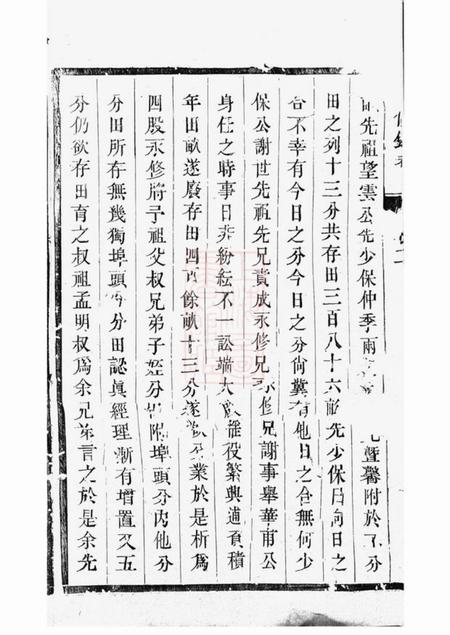 先祖望雲公先少保仲季兩
暨馨附於
分
田之列十三分共存田三百八十六畝先少保曰向日之
合不幸有今日之分今日之分尙冀有他日之合無何少
保公謝世先祖先兄責成永修兄永修兄謝事舉華甫公
身任之時事日非紛紜不一訟端大
徭役繁興逋負積
年田畝遂廢存田四百餘畝十三分遂
分業於是析爲
四股永修將子祖父叔兄弟子姪分
附埠頭分內他分
分田所存無幾獨埠頭
分田認眞經理漸有增置又五
分仍欲存田育之叔祖孟明叔爲余兄弟言之於是余先